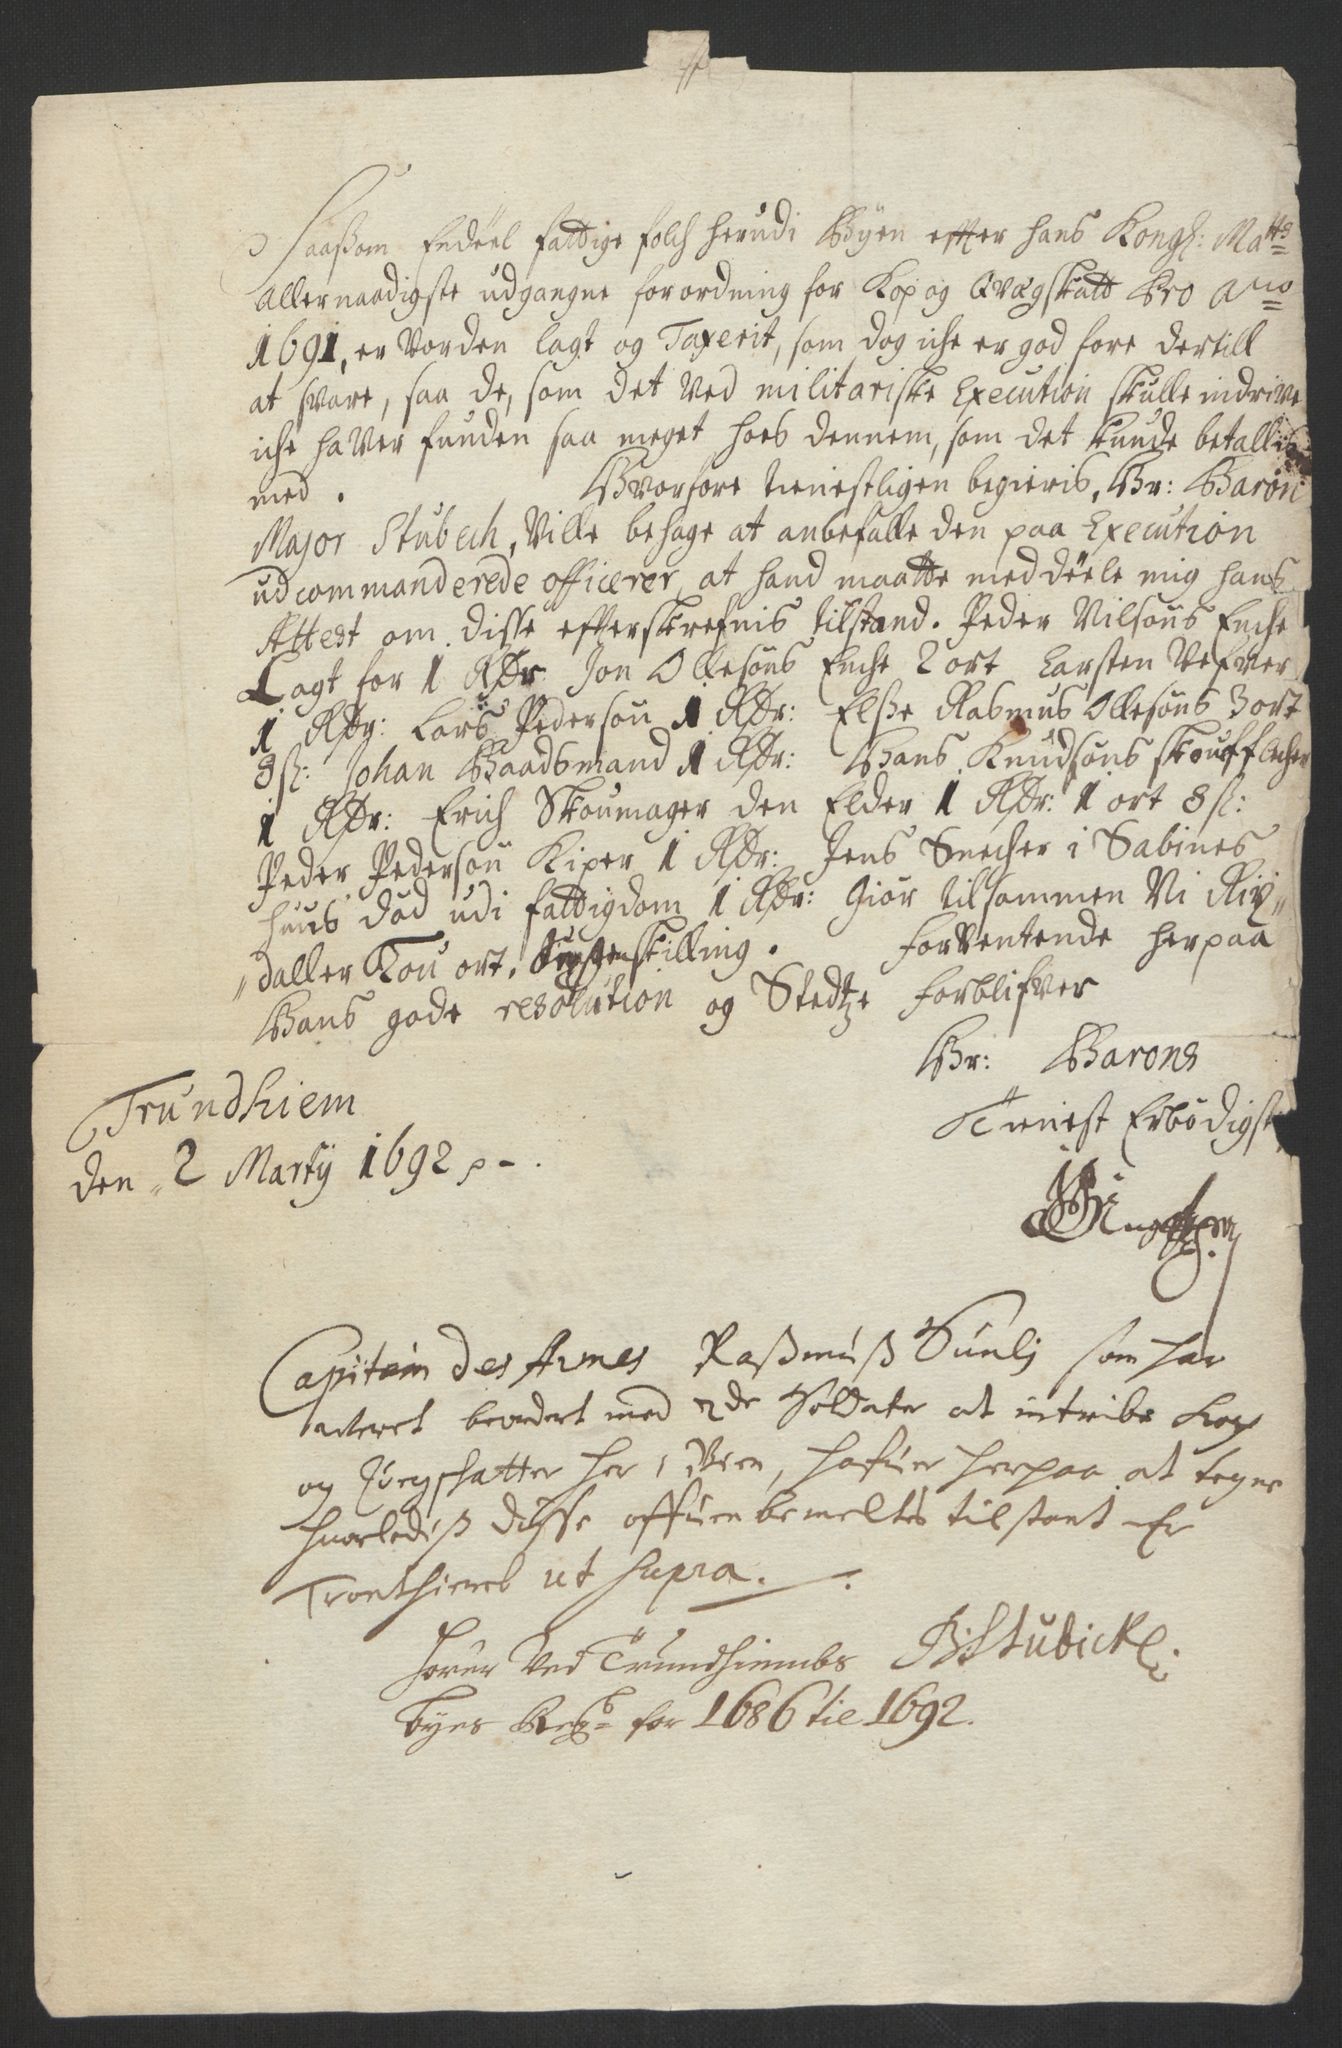 Saasom Endeel fattige folch herudi Byen efter hans Kongl: Matts
allernaadigste udgangne forordning for Kop og Qvægskatt Pro Ao
1691, er vorden lagt og Taxerit, som dog iche er god fore dertill
at svare, saa de, som det ved militariske Execution skulle indrive
iche haver funden saa meget hoes dennem, som det kunde betallis
med. Hvorfore tienestligen begieris, Hr: Baron
Major Stubech, Ville behage at anbefalle den paa Execution
udcommanderede officerer, at hand maatte meddeele mig hans
Attest om disse efterskrefnis tilstand. Peder Nilsøns Enche
Lagt for 1 Rdr: Jon Ollesøns Enche 2 ort Carsten Vefver
1 Rdr: Lars Pedersøn 1 Rdr: Elsse Rasmus Ollesøns 3 ort
8 sl: Johan Baadsmand 1 Rdr: Hans Knudsøns skoufflicher
1 Rdr: Erich Skoumager den Elder 1 Rdr: 1 ort 8 sl:
Peder Pedersøn Kiper 1 Rdr: Jens Snecher i Sabines
huus død udi fattigdom 1 Rdr: Giør tilsammen Ni Rix
daller Tou ort, skilling. Forventende herpaa
Hans gode resolution og Stedtze forblifver
Hr: Barons
Tienist Erbødigste
Trundhiem
den 2 Martij 1692
Capitain des Armes Rassmuss Sunlj som har
veret beordert med 2de Soldater at intribe Kop
og Qvegschatter her i Bien, hafuer herpaa at tegne
huorlediss disse offuenbemeltes tilstant Er
Tronthiem ut supra.
Stubick
Hører Ved Trundhiembs
byes Regb: for 1686 til 1692.